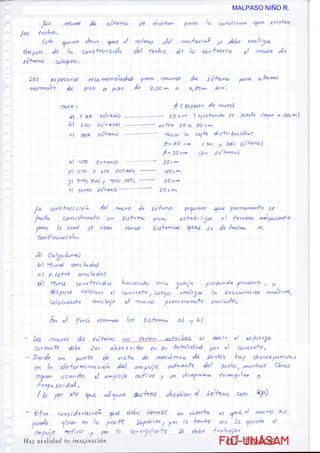 MALPASO NIÑO R.
Los muros de sótano se diseñan para la condición que existan
los techos.
Esto quiere decir que el relleno del material se debe realizar
después de la construcción del techo de lo contrario el muro de
sótano colapsa.
Los espesores recomendados para muros de sótano para alturas
normales de piso a piso de 2,00 m a 2,80m son:
PARA :
t (espesor de muro)
a) 1 ER SÓTANO 25cm
b) 2DO SÓTANO entre 25 a 30cm
c) 3ER SÓTANO Hacer la sgte distribución
t=30 cm
t=25cm
d) 4TO SÓTANO 35cm
e) 5TO y 6TO SÓTANO 40cm
55cm
La construcción del muro de sótano requiere que previamente se
haya considerado un sistema para estabilizar el terreno adyacente
para lo cual se usan varios sistemas que se detallan a
continuación.
a) Calzaduras
b) Muros anclados
c) Pilotes anclados
d) Muros construidos haciendo una zanja profunda primero , y
después colocar el concreto, luego realizar la excavación masiva,
colocando anclaje al muro previamente vaciado.
En el Perú usamos los sistemas a) y b)
- Los muros de sótano no llevan estribos es decir el esfuerzo
cortante debe ser absorbido en su totalidad por el concreto.
- Desde un punto de vista de mecánica de suelos hay discrepancias
en la determinación del empuje actuante del suelo, muchos libros
siguen usando el empuje activo y un diagrama triangular o
trapezoidal,
( Es por ello que algunos autores diseñan el sótano con Kp)
- Otra consideración que debe tenerse en cuenta es que el muro no
puede girar en la parte superior, por lo tanto no se genera el
empuje activo y por lo se debe trabajar
Haz realidad tu imaginación
FIC-UNASAM